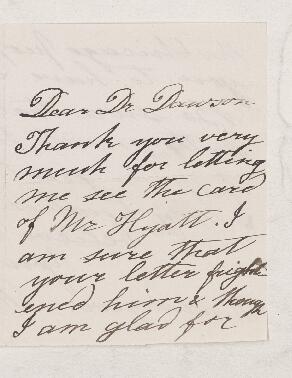 Dear Dr. Dawson
Thank you very
much for letting
me see the card
of Mr Hyatt. I
am sure that
your letter fright-
ened him & though
I am glad for